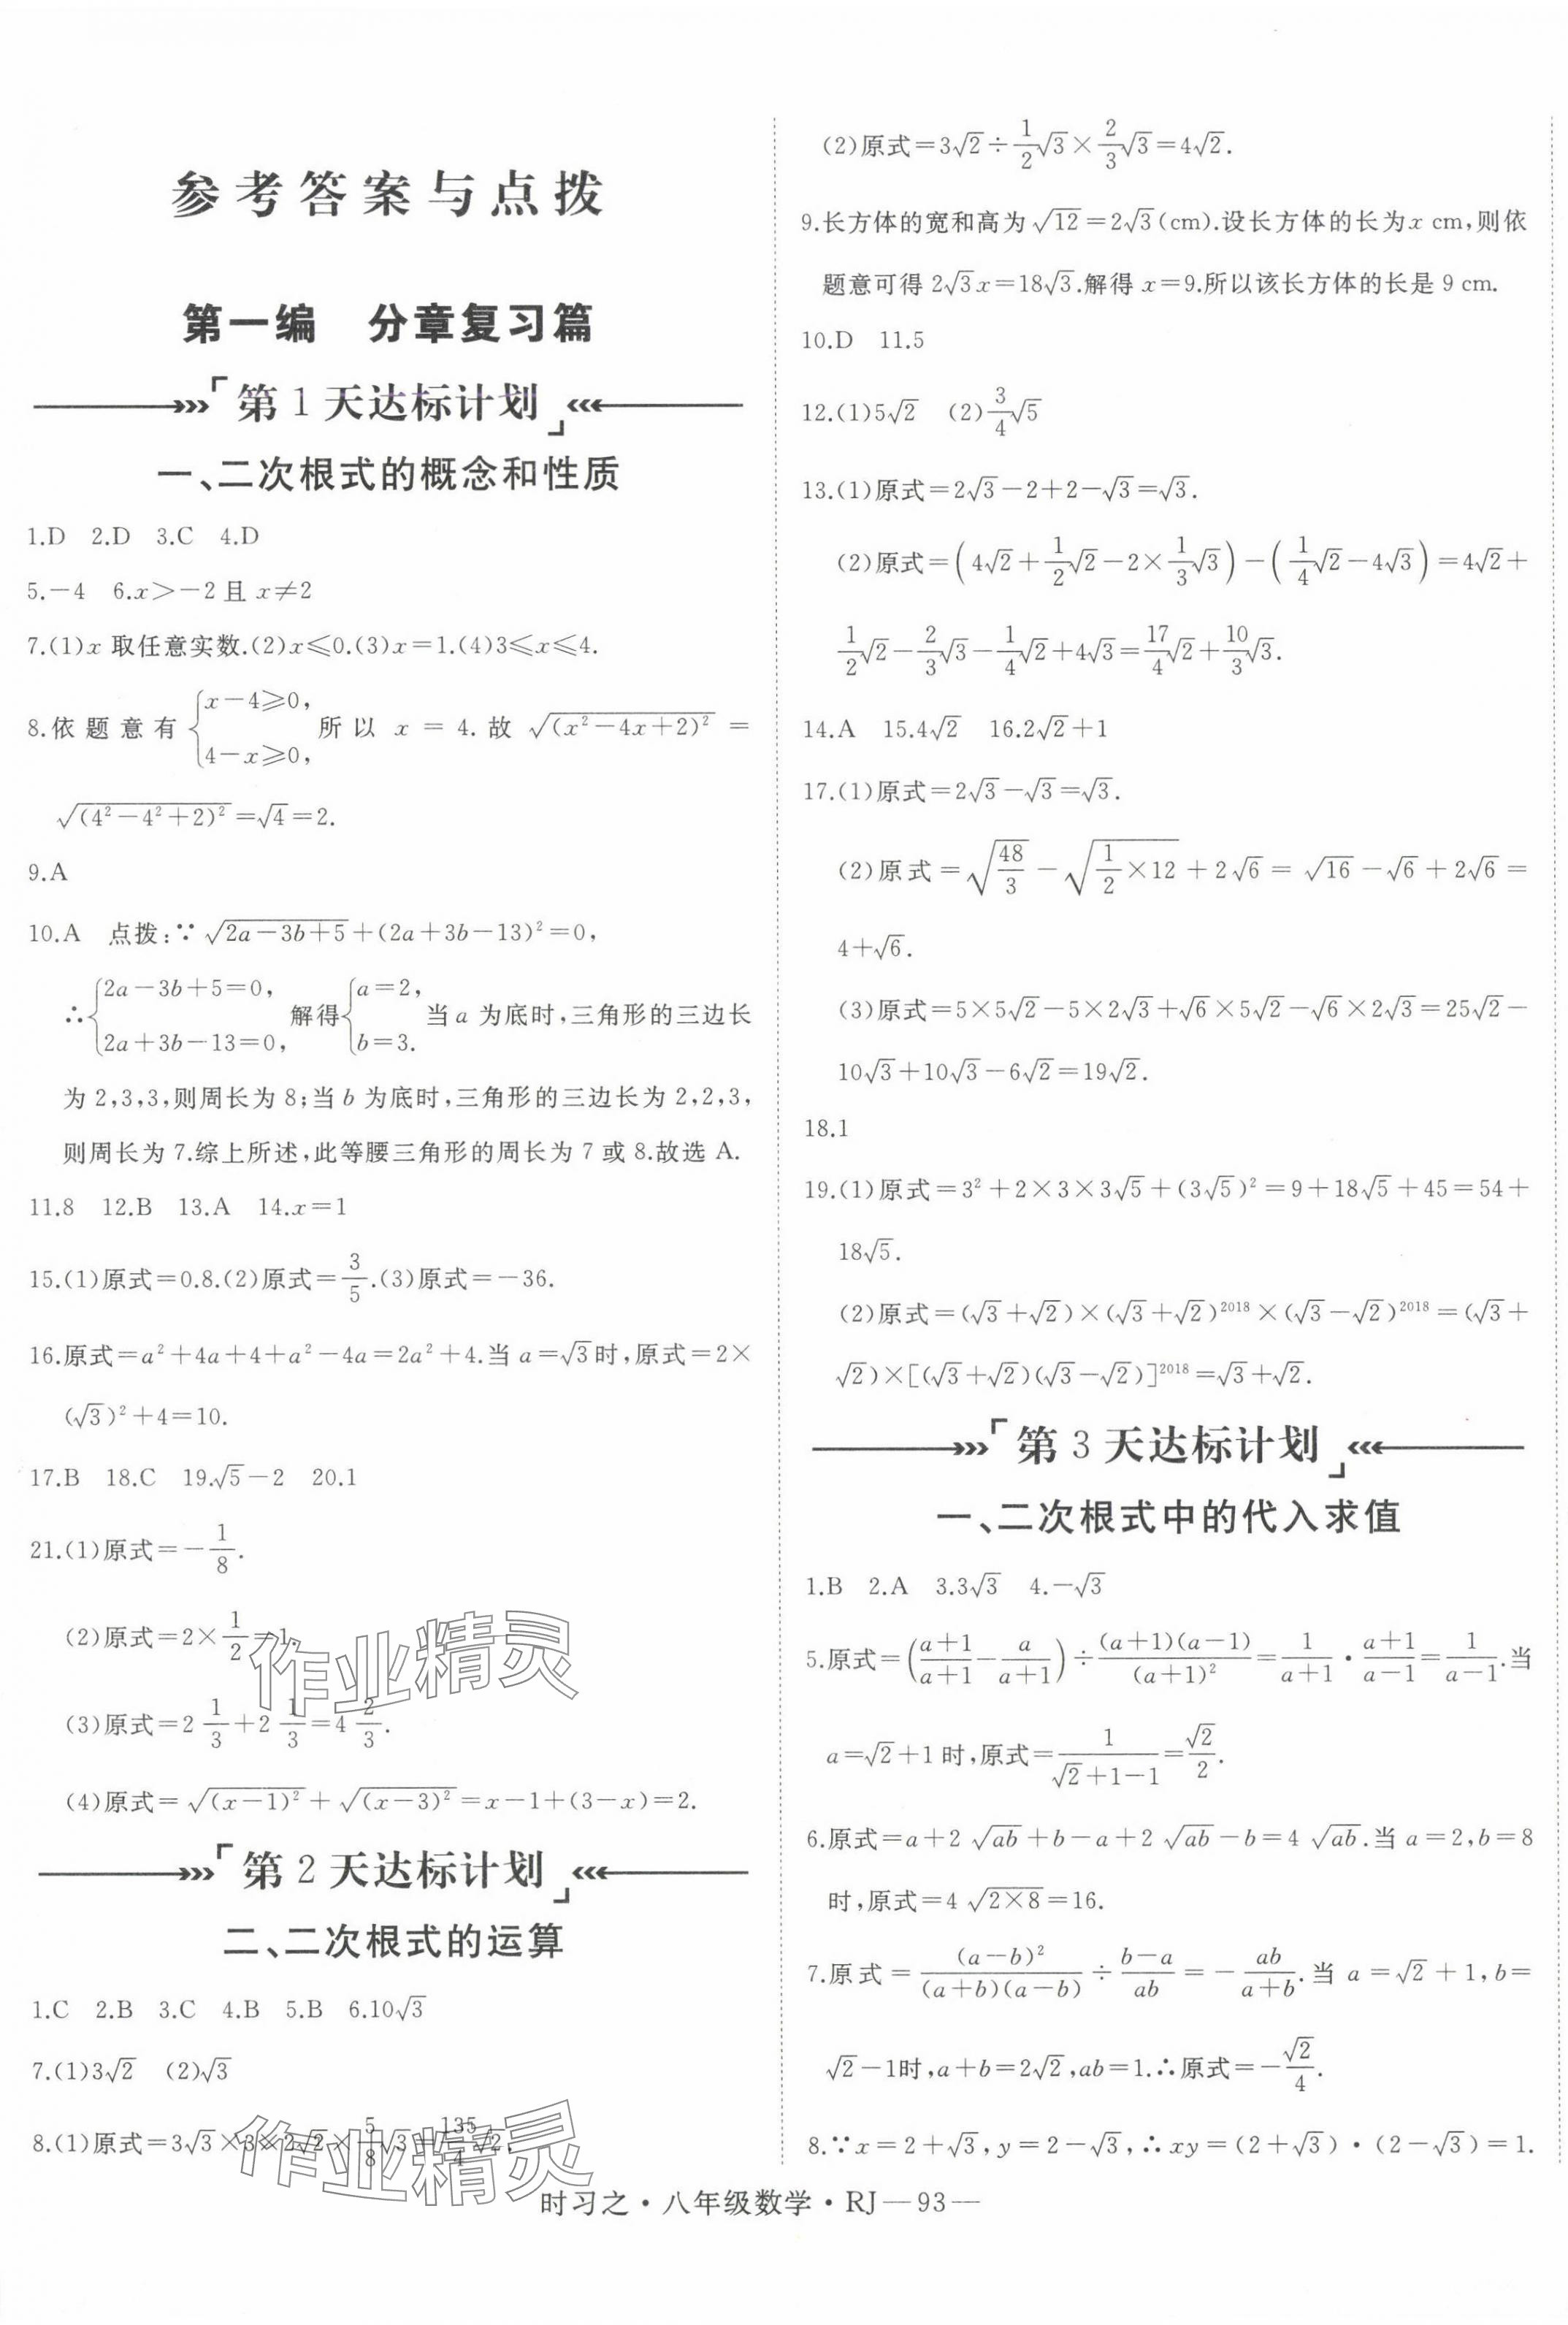 参考答案与点拨
第一编　分章复习篇
第1天达标计划
一、二次根式的概念和性质
1.D　2.D　3.C　4.D
5.－4　6.x＞－2且 x≠2
7.(1)x 取任意实数.(2)x≤0.(3)x＝1.(4)3≤x≤4.
8.依题意有{x－4≥0, 4－x≥0, 所以 x＝4.故 √((x²－4x＋2)²)＝
√((4²－4²＋2)²)＝√4＝2.
9.A
10.A　点拨:∵ √(2a－3b＋5)＋(2a＋3b－13)²＝0,
∴{2a－3b＋5＝0, 2a＋3b－13＝0, 解得{a＝2, b＝3. 当 a 为底时,三角形的三边长
为 2,3,3,则周长为 8;当 b 为底时,三角形的三边长为 2,2,3,
则周长为 7.综上所述,此等腰三角形的周长为 7 或 8.故选 A.
11.8　12.B　13.A　14.x＝1
15.(1)原式＝0.8.(2)原式＝3/5.(3)原式＝－36.
16.原式＝a²＋4a＋4＋a²－4a＝2a²＋4.当 a＝√3时,原式＝2×
(√3)²＋4＝10.
17.B　18.C　19.√5－2　20.1
21.(1)原式＝－1/8.
(2)原式＝2×1/2＝1.
(3)原式＝2 1/3＋2 1/3＝4 2/3.
(4)原式＝√((x－1)²)＋√((x－3)²)＝x－1＋(3－x)＝2.
第2天达标计划
二、二次根式的运算
1.C　2.B　3.C　4.B　5.B　6.10√3
7.(1)3√2　(2)√3
8.(1)原式＝3√3×3×2√2×5/8√3＝135/4√2,
(2)原式＝3√2÷1/2√3×2/3√3＝4√2.
9.长方体的宽和高为√12＝2√3(cm).设长方体的长为x cm,则依
题意可得 2√3x＝18√3.解得 x＝9.所以该长方体的长是 9 cm.
10.D　11.5
12.(1)5√2　(2)3/4√5
13.(1)原式＝2√3－2＋2－√3＝√3.
(2)原式＝(4√2＋1/2√2－2×1/3√3)－(1/4√2－4√3)＝4√2＋
1/2√2－2/3√3－1/4√2＋4√3＝17/4√2＋10/3√3.
14.A　15.4√2　16.2√2＋1
17.(1)原式＝2√3－√3＝√3.
(2)原式＝√(48/3)－√(1/2×12)＋2√6＝√16－√6＋2√6＝
4＋√6.
(3)原式＝5×5√2－5×2√3＋√6×5√2－√6×2√3＝25√2－
10√3＋10√3－6√2＝19√2.
18.1
19.(1)原式＝3²＋2×3×3√5＋(3√5)²＝9＋18√5＋45＝54＋
18√5.
(2)原式＝(√3＋√2)×(√3＋√2)²⁰¹⁸×(√3－√2)²⁰¹⁸＝(√3＋
√2)×[(√3＋√2)(√3－√2)]²⁰¹⁸＝√3＋√2.
第3天达标计划
一、二次根式中的代入求值
1.B　2.A　3.3√3　4.－√3
5.原式＝((a＋1)/(a＋1)－a/(a＋1))÷(a＋1)(a－1)/(a＋1)²＝1/(a＋1)·(a＋1)/(a－1)＝1/(a－1).当
a＝√2＋1时,原式＝1/(√2＋1－1)＝√2/2.
6.原式＝a＋2√ab＋b－a＋2√ab－b＝4√ab.当 a＝2,b＝8
时,原式＝4√(2×8)＝16.
7.原式＝(a－b)²/(a＋b)(a－b)÷(b－a)/ab＝－ab/(a＋b).当 a＝√2＋1,b＝
√2－1时,a＋b＝2√2,ab＝1.∴原式＝－√2/4.
8.∵x＝2＋√3,y＝2－√3,∴xy＝(2＋√3)·(2－√3)＝1.
时习之·八年级数学·RJ—93—
作业精灵
作业精灵